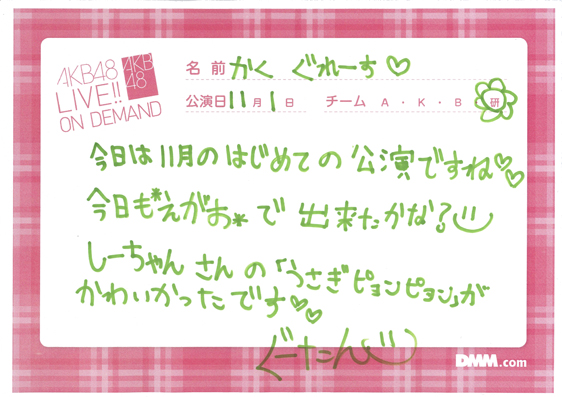 AKB48
LIVE!!
ON DEMAND
AKB
48
名前 かく ぐれーす♡
公演日 11月 1日 チーム A・K・B・研
今日は11月のはじめての公演ですね♡♡
今日も*えがお*で出来たかな?
しーちゃんさんの「うさぎピョンピョン」が
かわいかったです♡♡
ぐーたん
DMM.com